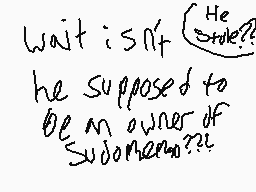 wait isn't
He
stole??
he supposed to
be an owner of
Sudomemo???